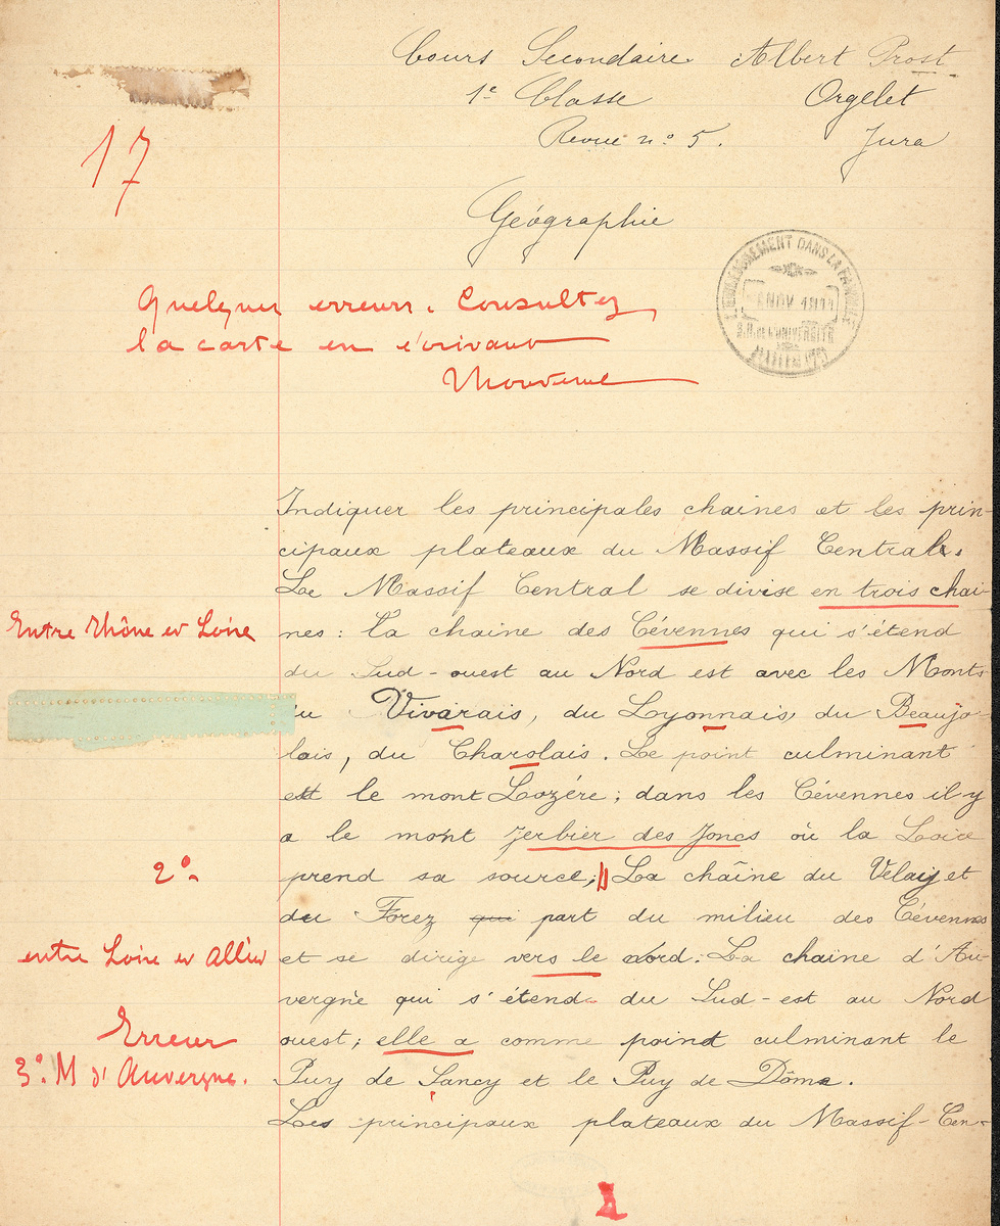 Cours Secondaire Albert Prost
1e Classe Orgelet
Revue n° 5. Jura
17
Géographie
L'ENSEIGNEMENT DANS LA FAMILLE
NOV 1911
DE L'UNIVERSITÉ
Quelques erreurs. Consultez
la carte en écrivant
Indiquer les principales chaines et les prin-
cipaux plateaux du Massif Central.
Le Massif Central se divise en trois chai-
Entre Rhône et Loire
nes : la chaine des Cévennes qui s'étend
du Sud-ouest au Nord est avec les Monts
du Vivarais, du Lyonnais, du Beaujo-
lais, du Charolais. Le point culminant
est le mont Lozére ; dans les Cévennes il y
a le mont Jerbier des Joncs où la Loire
2°.
prend sa source; La chaîne du Velay et
du Forez qui part du milieu des Cévennes
entre Loire et Allier
et se dirige vers le nord : La chaine d'Au-
vergne qui s'étend du Sud-est au Nord
Erreur
ouest ; elle a comme point culminant le
3°. M d'Auvergne.
Puy de Sancy et le Puy de Dôme.
Les principaux plateaux du Massif-Cen-